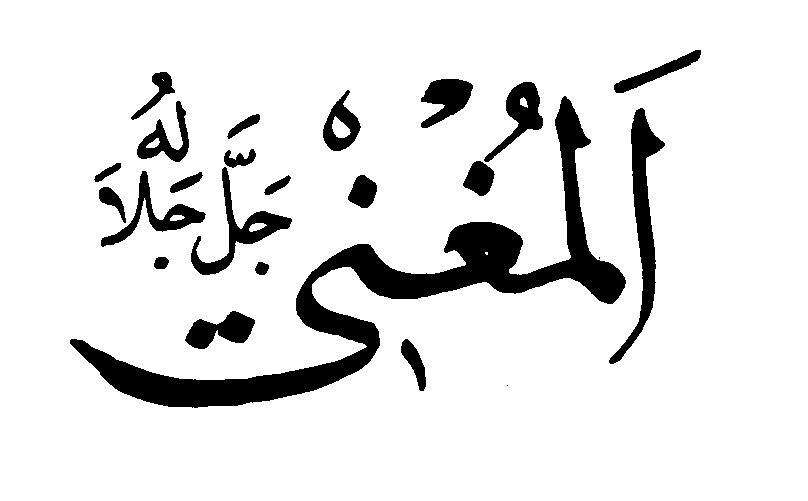 اَلْمُغْنِي
جَلَّ جَلَالُهُ